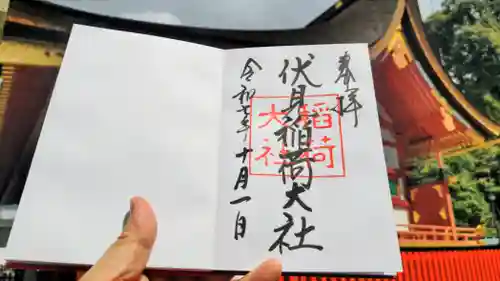 奉拝
伏見稲荷大社
稲荷
大社
令和七年十月一日